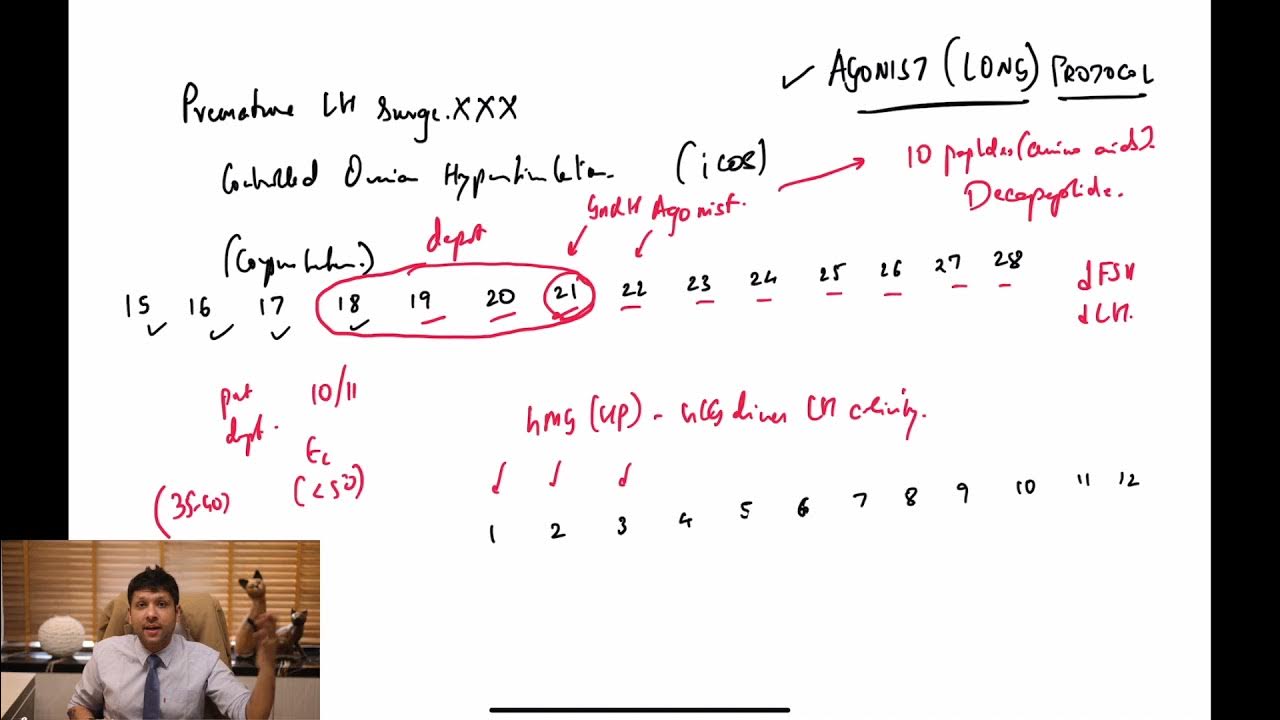 ✓ AGONIST (LONG) PROTOCOL
Premature LH Surge. XXX
10 peptides (amino acids).
Decapeptide.
Controlled Hyperstimulation. (iCOS)
GnRH Agonist.
depot
15 16 17 18 19 20 21 22 23 24 25 26 27 28
dFSH
dLH.
10/11
hMG (UP) - hCG driven LH activity.
E2
(<50)
(35-40)
1 2 3 4 5 6 7 8 9 10 11 12